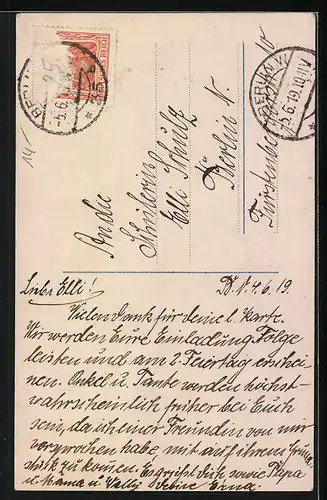 DEUTSCHES REICH
BERLIN
-5.6.
BERLIN
5.6.19.10-11V
An die
Schülerin
Elli Schulz
Berlin N.
10
Liebe Elli!
B. d. 4.6.19.
Vielen Dank für deine l. Karte.
Wir werden Eure Einladung Folge
leisten und am 2. Feiertag erschei-
nen. Onkel u. Tante werden höchst-
wahrscheinlich früher bei Euch
sein, da ich einer Freundin von mir
versprochen habe, mit auf ihrem
zu kommen. Es grüßt Dich sowie Papa
u. Mama u. Wally Deine Erna.